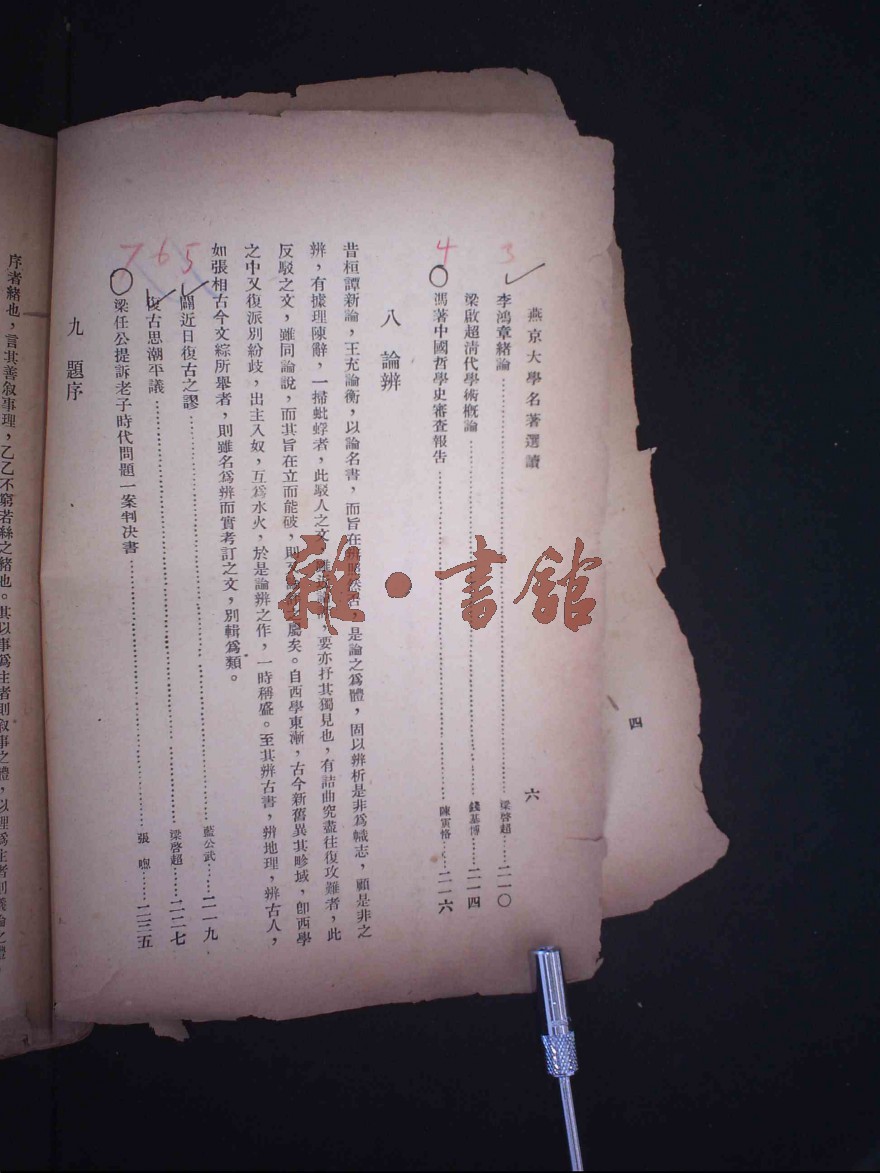 燕京大學名著選讀
六
3
李鴻章緒論……梁啓超……二一〇
梁啟超清代學術概論……錢基博……二一四
4
馮著中國哲學史審查報告……陳寅恪……二一六
八 論辨
昔桓譚新論，王充論衡，以論名書，而旨在辨昭然否，是論之爲體，固以辨析是非爲幟志，顧是非之
辨，有據理陳辭，一掃蚍蜉者，此駁人之文，要亦抒其獨見也，有詰曲究盡往復攻難者，此
反駁之文，雖同論說，而其旨在立而能破，則屬矣。自西學東漸，古今新舊異其畛域，卽西學
之中又復派別紛歧，出主入奴，互爲水火，於是論辨之作，一時稱盛。至其辨古書，辨地理，辨古人，
如張相古今文綜所舉者，則雖名爲辨而實考訂之文，別輯爲類。
5
闢近日復古之謬……藍公武……二一九
6
復古思潮平議……梁啓超……二二七
7
梁任公提訴老子時代問題一案判决書……張煦……二三五
九 題序
序者緒也，言其善敘事理，乙乙不窮若絲之緒也。其以事爲主者則敘事之體，以理爲主者則議論之體。
四
雜·書館